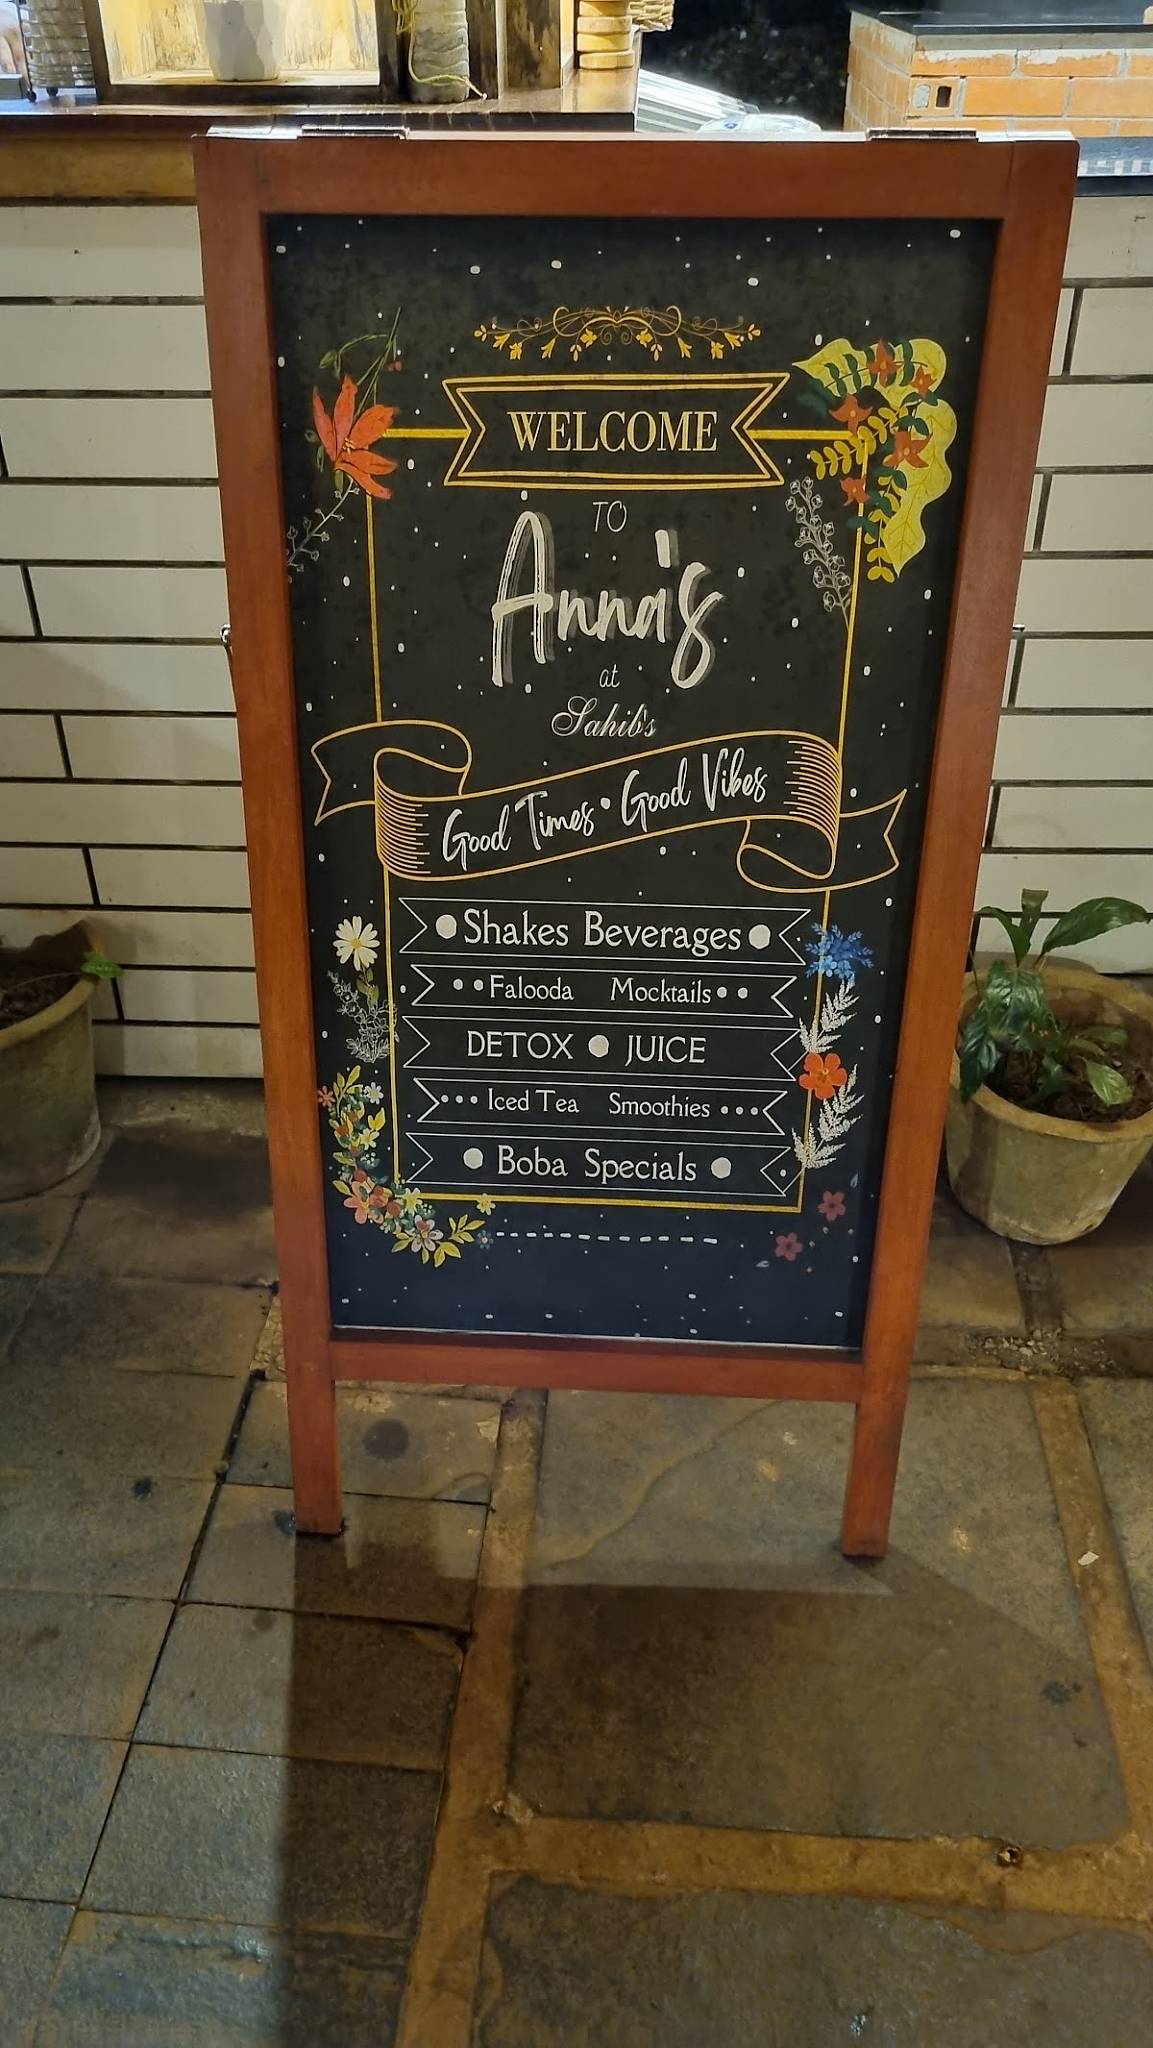 WELCOME
TO
Anna's
at
Sahib's
Good Times • Good Vibes
Shakes Beverages
Falooda Mocktails
DETOX • JUICE
Iced Tea Smoothies
Boba Specials